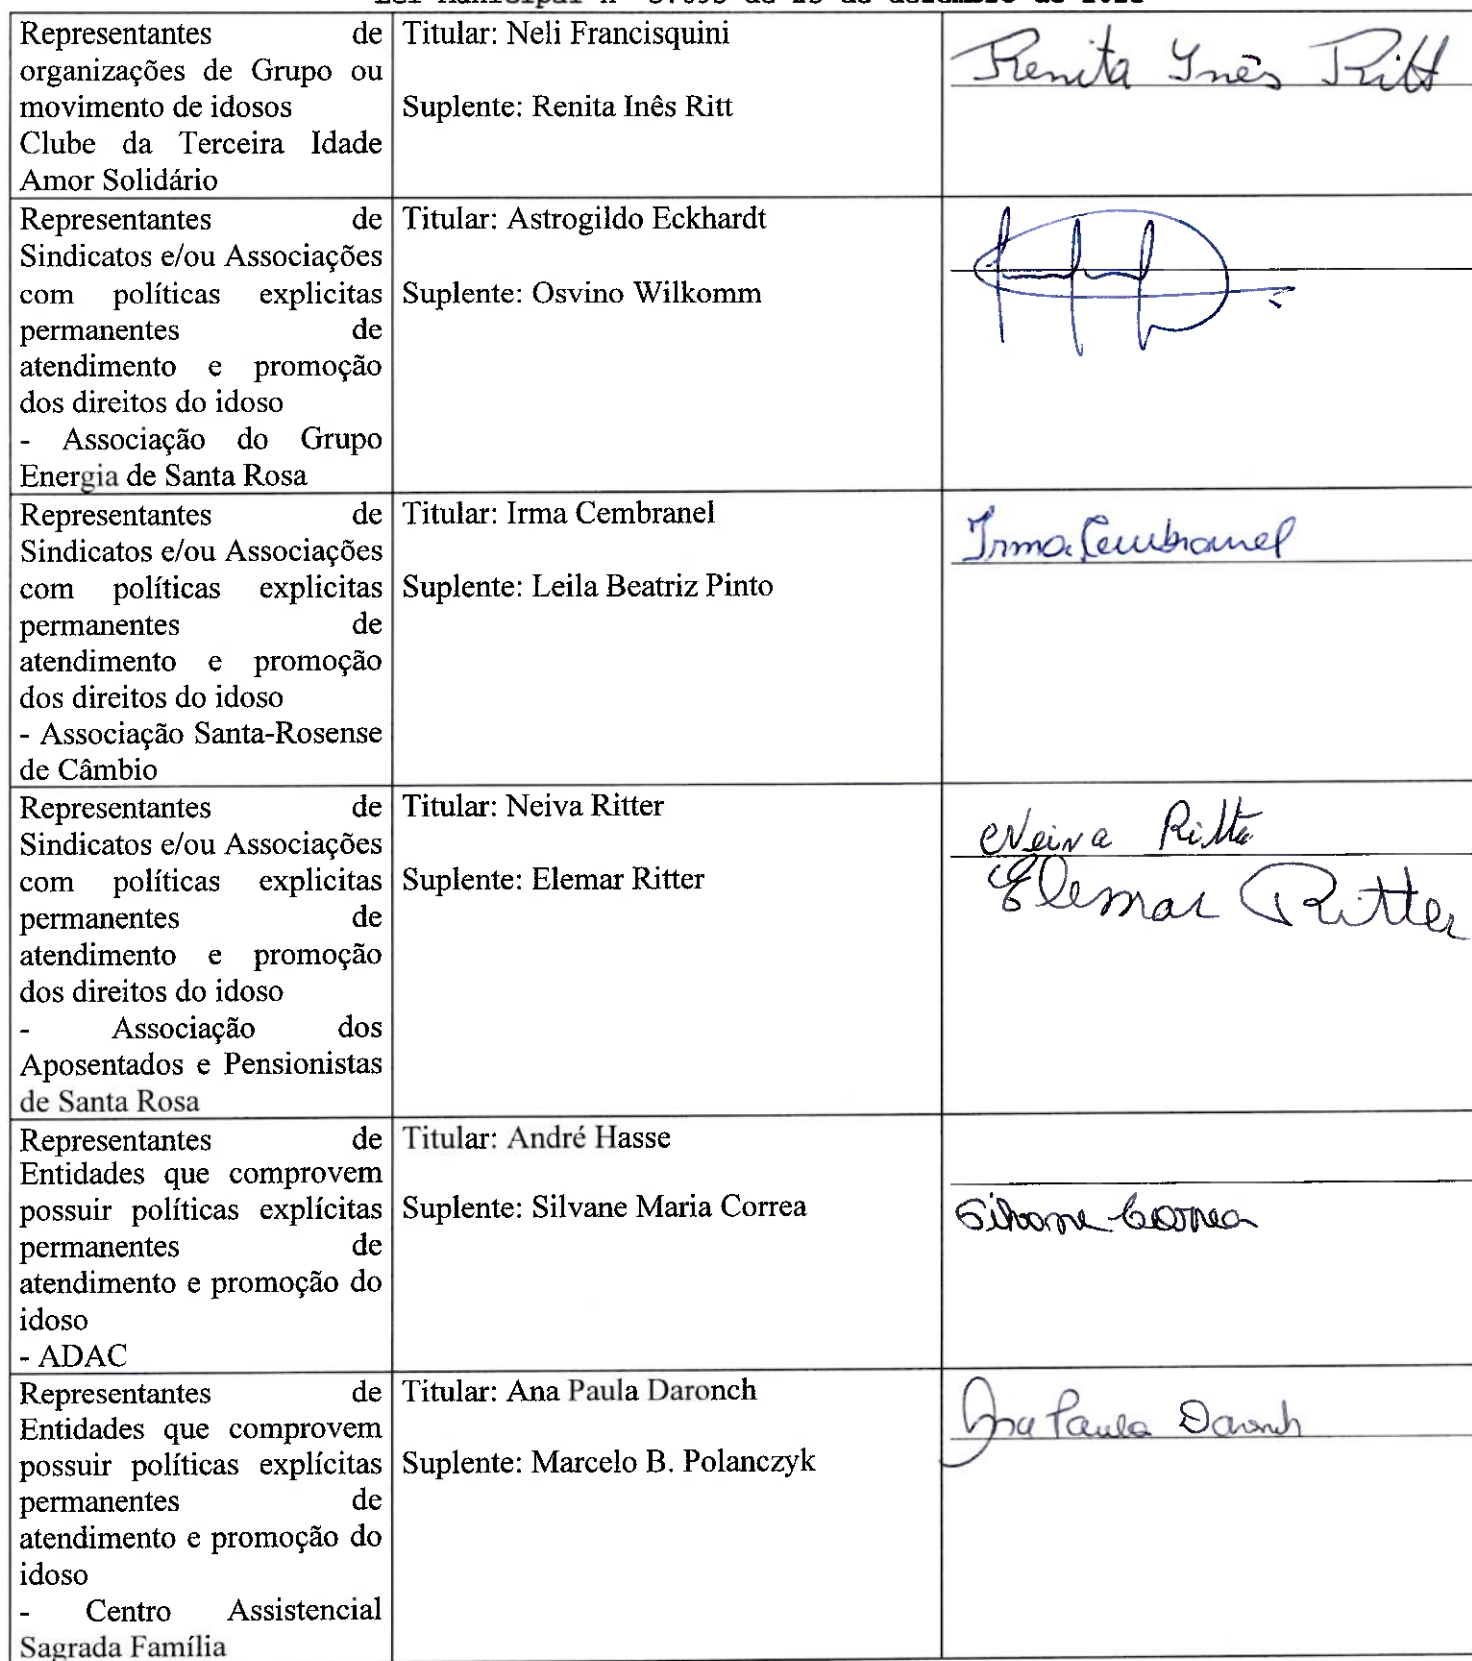 Representantes de
organizações de Grupo ou
movimento de idosos
Clube da Terceira Idade
Amor Solidário
Titular: Neli Francisquini
Suplente: Renita Inês Ritt
Renita Inês Ritt
Representantes de
Sindicatos e/ou Associações
com políticas explicitas
permanentes de
atendimento e promoção
dos direitos do idoso
- Associação do Grupo
Energia de Santa Rosa
Titular: Astrogildo Eckhardt
Suplente: Osvino Wilkomm
Representantes de
Sindicatos e/ou Associações
com políticas explicitas
permanentes de
atendimento e promoção
dos direitos do idoso
- Associação Santa-Rosense
de Câmbio
Titular: Irma Cembranel
Suplente: Leila Beatriz Pinto
Irma Cembranel
Representantes de
Sindicatos e/ou Associações
com políticas explicitas
permanentes de
atendimento e promoção
dos direitos do idoso
- Associação dos
Aposentados e Pensionistas
de Santa Rosa
Titular: Neiva Ritter
Suplente: Elemar Ritter
Neiva Ritter
Elemar Ritter
Representantes de
Entidades que comprovem
possuir políticas explícitas
permanentes de
atendimento e promoção do
idoso
- ADAC
Titular: André Hasse
Suplente: Silvane Maria Correa
Silvane Correa
Representantes de
Entidades que comprovem
possuir políticas explícitas
permanentes de
atendimento e promoção do
idoso
- Centro Assistencial
Sagrada Família
Titular: Ana Paula Daronch
Suplente: Marcelo B. Polanczyk
Ana Paula Daronch